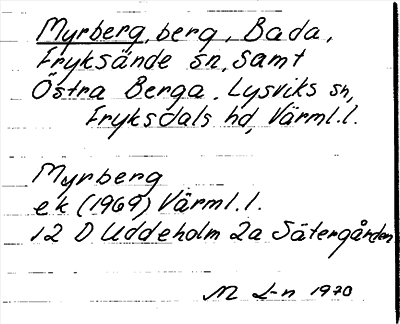 Myrberg, berg, Bada,
Fryksände sn, samt
Östra Berga, Lysviks sn,
Fryksdals hd, Värml.l.
Myrberg
ek (1969) Värml.l.
12 D Uddeholm 2a Sätergården
M L-n 1970